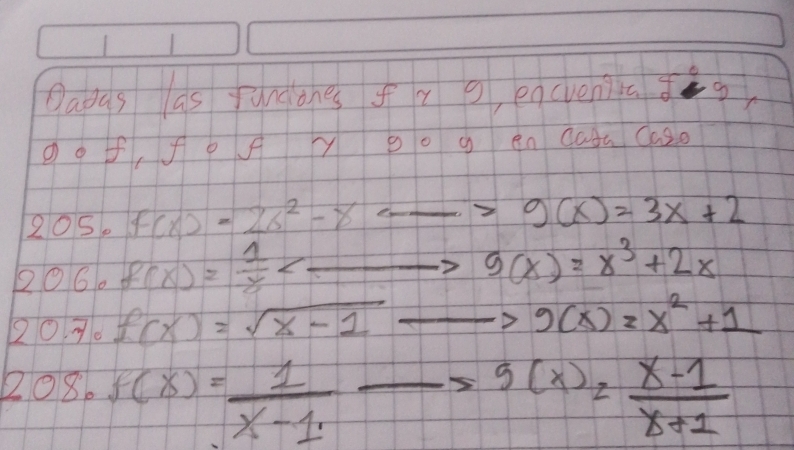 Dadas las funciones f y g, encuentra f o g,
g o f, f o f y g o g en cada caso
205. f(x) = 2x² - x <——> g(x) = 3x + 2
206. f(x) = 1/x <——> g(x) = x³ + 2x
207. f(x) = √(x - 1) ——> g(x) = x² + 1
208. f(x) = 1/(x - 1) ——> g(x) = (x - 1)/(x + 1)